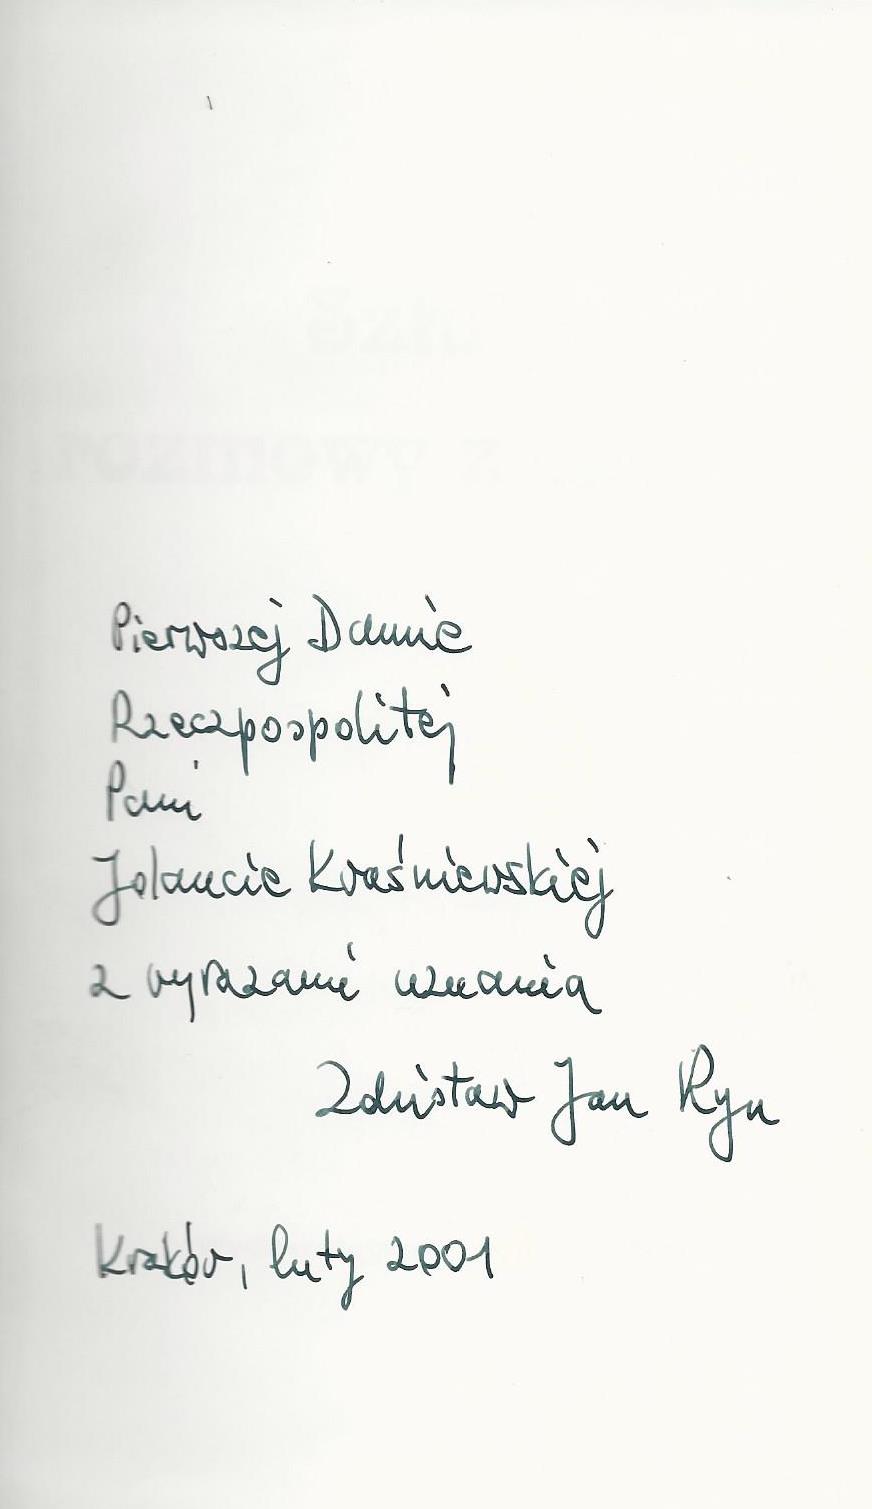 Pierwszej Damie
Rzeczpospolitej
Pani
Jolancie Kwaśniewskiej
z wyrazami uznania
Zdzisław Jan Ryn
Kraków, luty 2001